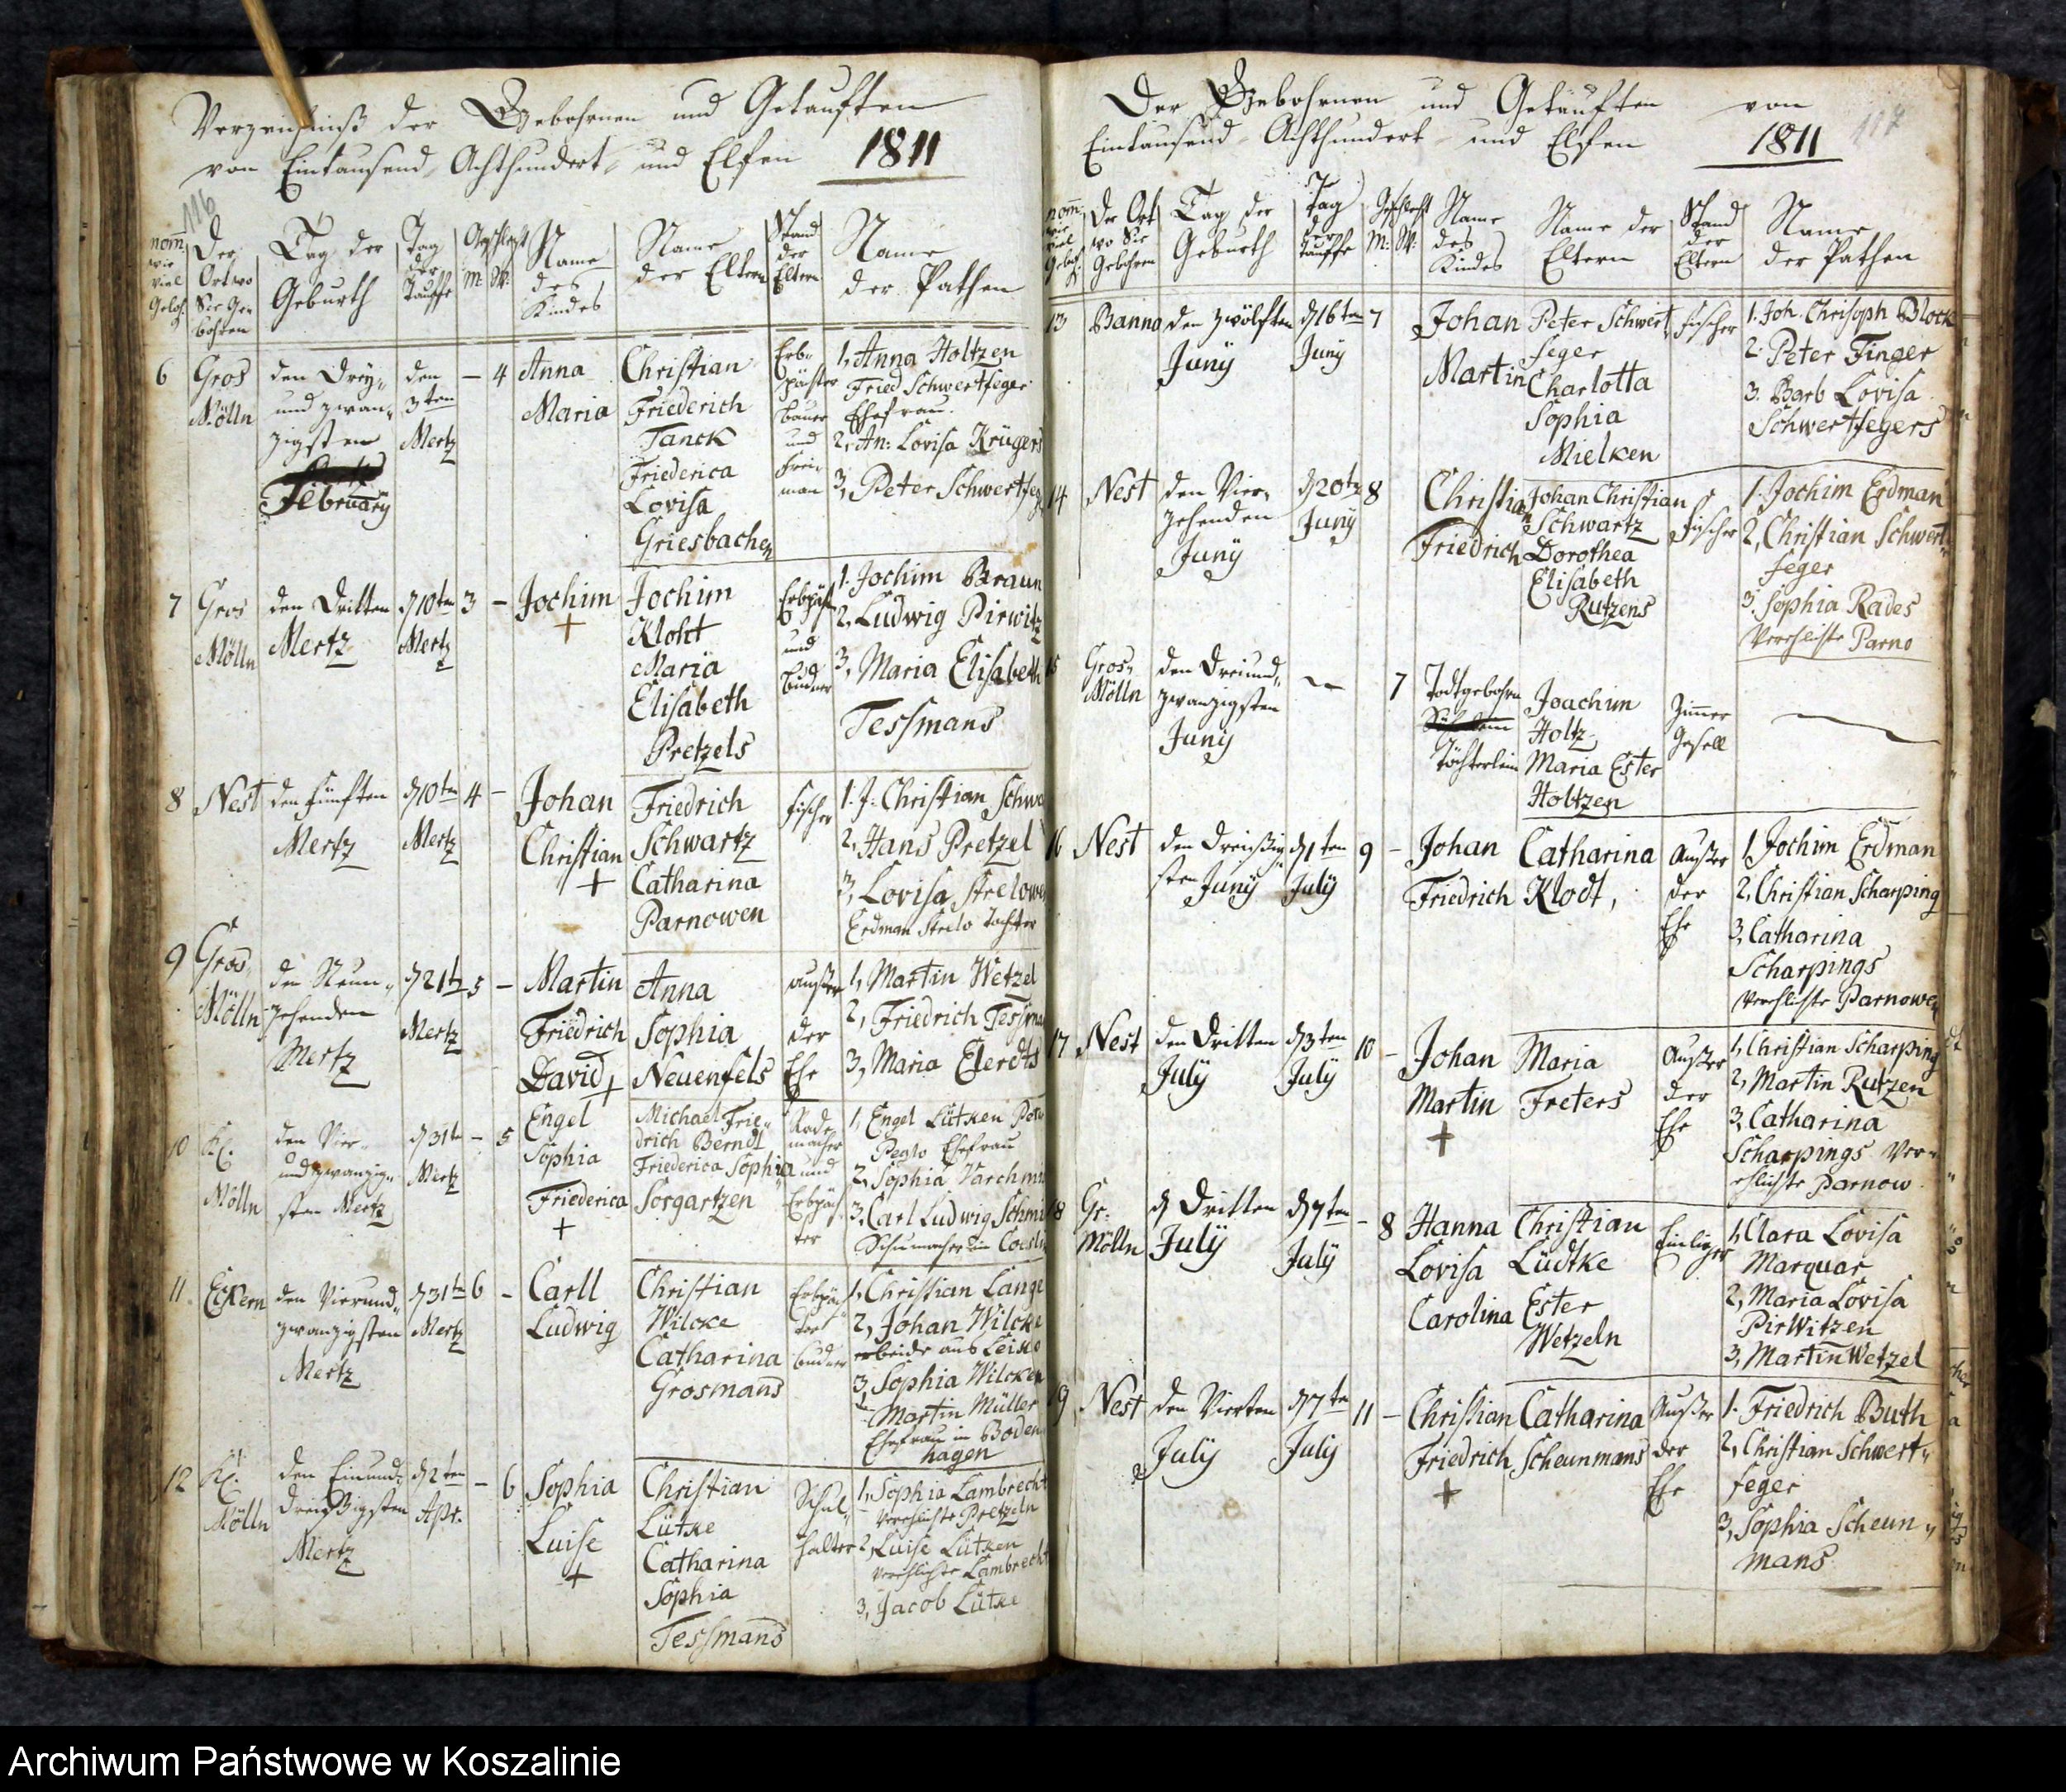 Verzeichniß der Gebohrnen und Getauften
von Eintausend Achthundert und Elfen 1811
116
nom̄: wie viel Geboh.
Der Ort wo Sie Gebohren
Tag der Geburth
Tag der Tauffe
Geschlecht M: W:
Name des Kindes
Name der Eltern
Stand der Eltern
Name der Pathen
6
Gros
Mölln
den Drey-
und zwan-
zigsten
February
den
3ten
Mertz
– 4
Anna
Maria
Christian
Friederich
Tanck
Friederica
Lovisa
Griesbachen
Erb-
pächter
bauer
und
Frei-
man
1, Anna Holtzen
Fried Schwertfeger
Ehefrau.
2, An: Lovisa Krügers
3, Peter Schwertfeg
7
Gros
Mölln
den Dritten
Mertz
d 10ten
Mertz
3 –
Jochim
+
Jochim
Kloht
Maria
Elisabeth
Pretzels
Erbpäch
und
Budner
1. Jochim Braun
2, Ludwig Pirwitz
3, Maria Elisabeth
Tessmans
8
Nest
den Fünften
Mertz
d 10ten
Mertz
4 –
Johan
Christian
+
Friedrich
Schwartz
Catharina
Parnowen
Fischer
1. J: Christian Schwa
2, Hans Pretzel
3, Lovisa Strelowen
Erdman Strelo Tochter
9
Gros
Mölln
den Neun-
zehenden
Mertz
d 21t
Mertz
5 –
Martin
Friedrich
David +
Anna
Sophia
Neuenfels
außer
der
Ehe
1, Martin Wetzel
2, Friedrich Tessma
3, Maria Elerdts
10
Kl.
Mölln
den Vier-
und zwanzig-
sten Mertz
d 31t
Mertz
– 5
Engel
Sophia
Friederica
+
Michael Frie-
drich Berndt
Friederica Sophia
Sorgartzen
Rade-
macher
und
Erbpäch-
ter
1, Engel Lütken
Ehefrau
2, Sophia Varchmi
3, Carl Ludwig Schmi
Schumacher in Coesli
11
den Vierund-
zwanzigsten
Mertz
d 31ten
Mertz
6 –
Carll
Ludwig
Christian
Wilcke
Catharina
Grosmans
Erbpäch
ter
budner
1, Christian Lange
2, Johan Wilcke
beide aus
3, Sophia Wilcken
Martin Müller
Ehefrau in Boden
hagen
12
Kl.
Mölln
den Einund-
Dreißigsten
Mertz
d 2ten
Apr.
– 6
Sophia
Luise
+
Christian
Lütke
Catharina
Sophia
Tessmans
Schul-
halter
1, Sophia Lambrecht
Verehlichte Pretzeln
2, Luise Lütken
Verehlichte Lambrecht
3, Jacob Lütke
Der Gebohrnen und Getäuften von
Eintausend Achthundert und Elfen 1811
117
nom̄: wie viel Geboh.
Der Ort wo Sie Gebohren
Tag der Geburth
Tag der Tauffe
Geschlecht M: W:
Name des Kindes
Name der Eltern
Stand der Eltern
Name der Pathen
13
Banno
den Zwölften
Juny
d 16ten
Juny
7
Johan
Martin
Peter Schwert
feger
Charlotta
Sophia
Mielken
Fischer
1. Joh. Chrisoph Block
2. Peter Finger
3. Barb Lovisa
Schwertfegers
14
Nest
den Vier-
zehenden
Juny
d 20t
Juny
8
Christian
Friedrich
Johan Christian
Schwartz
Dorothea
Elisabeth
Rutzens
Fischer
1. Jochim Erdman
2, Christian Schwert-
feger
3. Sophia Rades
Verehlichte Parno
15
Gros-
Mölln
den Dreiund-
zwanzigsten
Juny
7
Todtgebohrn
Töchterlein
Joachim
Holtz
Maria Ester
Holtzen
Zimer
Gesell
16
Nest
den Dreißig-
sten Juny
d 1ten
July
9 –
Johan
Friedrich
Catharina
Klodt,
Außer
der
Ehe
1, Jochim Erdman
2, Christian Scharping
3, Catharina
Scharpings
Verehlichte Parnowen
17
Nest
den Dritten
July
d 3ten
July
10 –
Johan
Martin
+
Maria
Freters
Außer
der
Ehe
1, Christian Scharping
2, Martin Rutzen
3, Catharina
Scharpings Ver-
ehlichte Parnow
18
Gr:
Mölln
d Dritten
July
d 7ten
July
– 8
Hanna
Lovisa
Carolina
Christian
Lüdtke
Ester
Wetzeln
Einlieger
1, Clara Lovisa
Marquar
2, Maria Lovisa
Pirwitzen
3, Martin Wetzel
19
Nest
den Vierten
July
d 7ten
July
11 –
Christian
Friedrich
+
Catharina
Scheunmans
Außer
der
Ehe
1. Friedrich Buth
2, Christian Schwert-
feger
3, Sophia Scheun-
mans
Archiwum Państwowe w Koszalinie